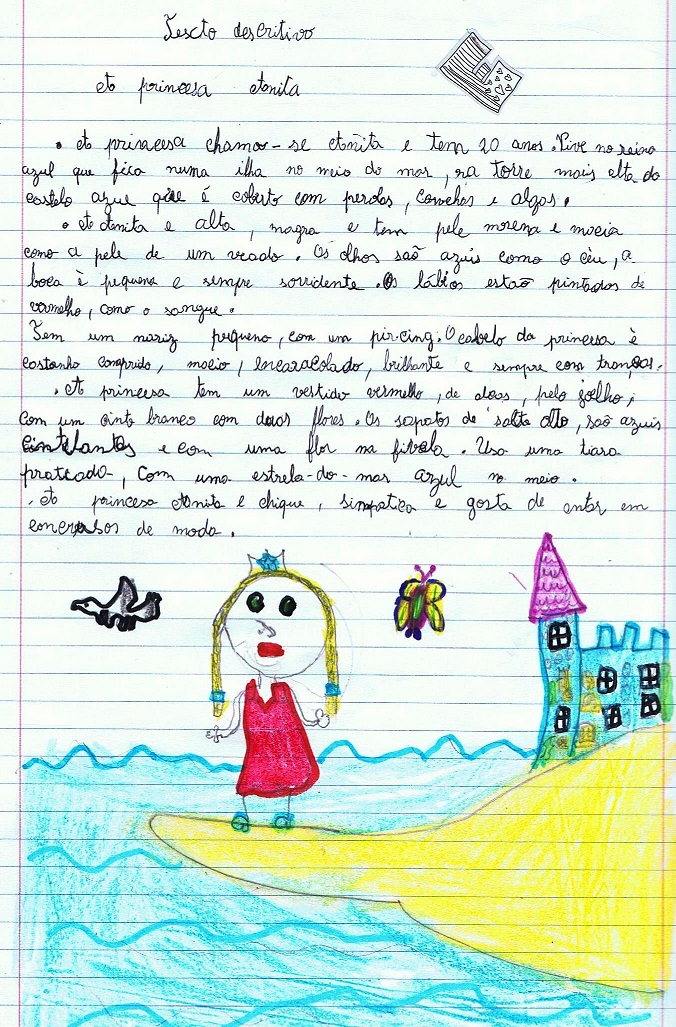 Texcto descritivo
A princesa Anita
A princesa chama-se Anita e tem 20 anos. Vive no reino
azul que fica numa ilha no meio do mar, na torre mais alta do
castelo azul que é coberto com perolas, conchas e algas.
A Anita e alta, magra e tem pele morena e macia
como a pele de um veado. Os olhos saõ azuis como o cèu, a
boca è pequena e sempre sorridente. Os lábios estaõ pintados de
vermelho, como o sangue.
Tem um nariz pequeno, com um pircing. O cabelo da princesa è
castanho comprido, macio, encaracolado, brilhante e sempre com tranças.
A princesa tem um vestido vermelho, de alças, pelo joelho,
com um cinto branco com duas flores. Os sapatos de salto alto, saõ azuis
cintelantes e com uma flor na fivela. Usa uma tiara
prateada, com uma estrela-do-mar azul no meio.
A princesa Anita e chique, simpatica e gosta de entar em
concursos de moda.